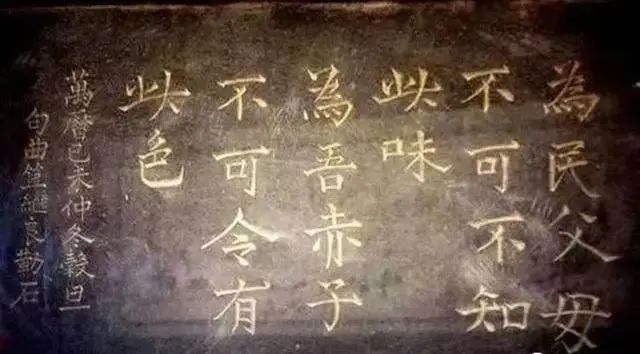 為民父毋
不可不知
此味
為吾赤子
不可令有
此色
萬曆己未仲冬穀旦
句曲笪繼良勒石